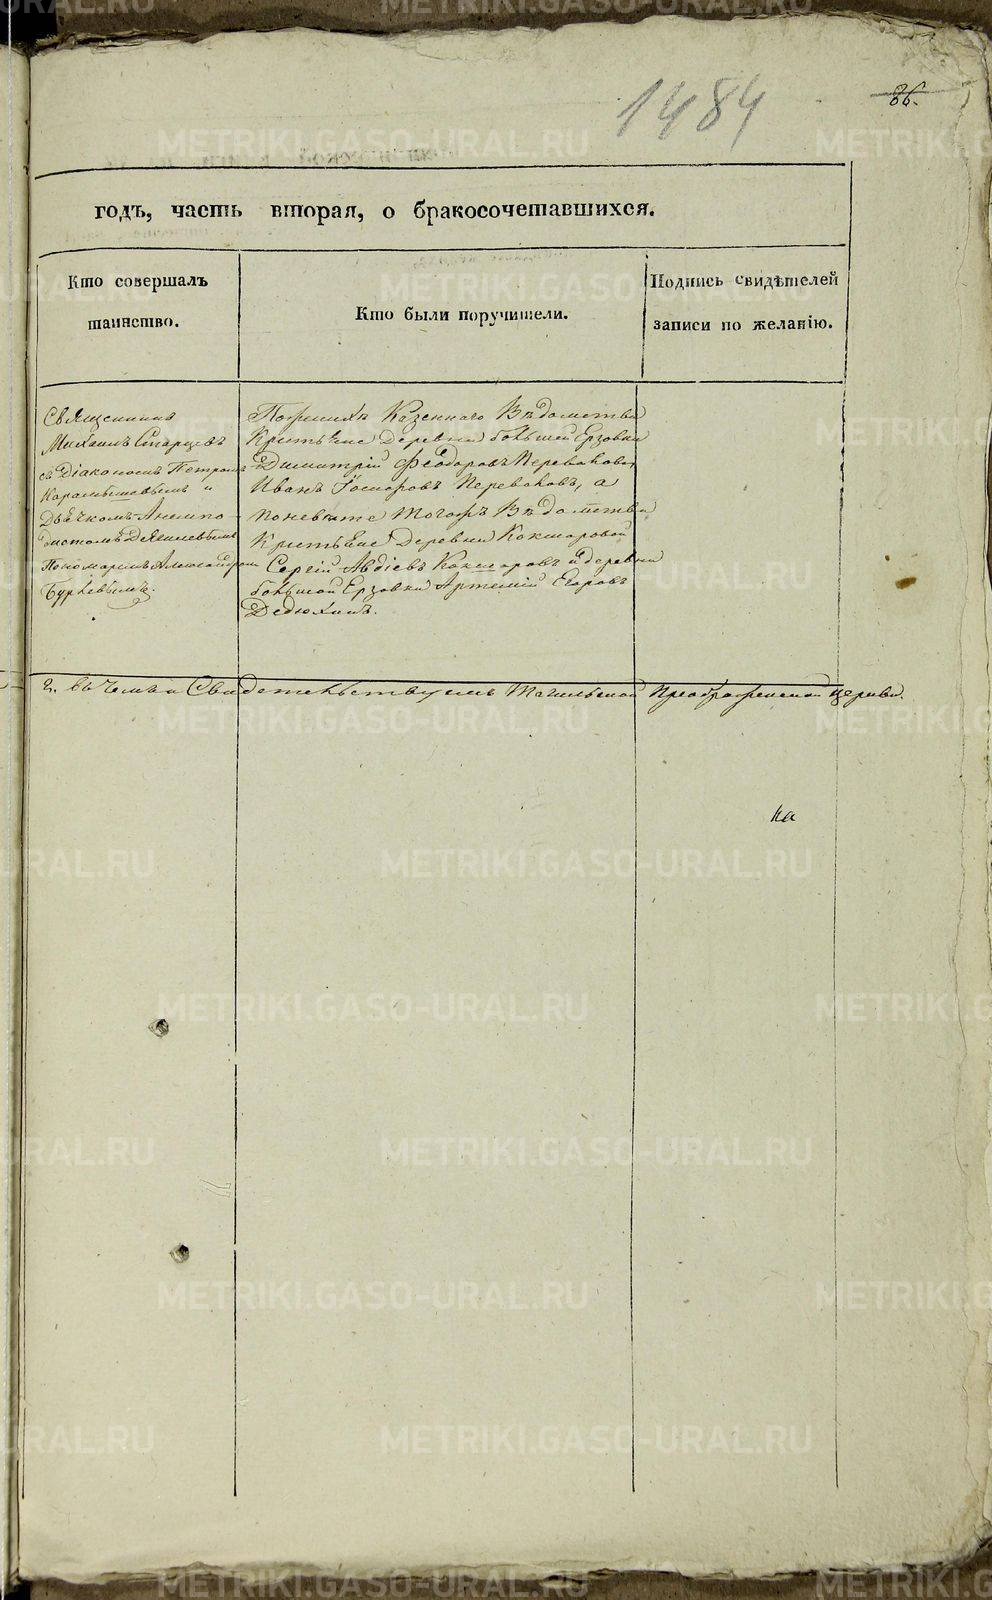 1484
86.
годъ, часть вторая, о бракосочетавшихся.
Кто совершалъ
таинство.
Кто были поручители.
Подпись свидѣтелей
записи по желанію.
Священникъ
Михаилъ Старцевъ
съ Діакономъ Петромъ
и
Дьячкомъ
Пономаремъ Александромъ
По женихѣ Казеннаго Вѣдомства
Крестьяне Деревни большей Ерзовки
Димитрій Феодоровъ Переваловъ,
Иванъ Переваловъ, а
по невѣсте тогожъ Вѣдомства
Крестьяне Деревни Кокшаровой
Сергій Авдіевъ Кокшаровъ и деревни
большой Ерзовки Артемій Егоровъ
Дедюхинъ.
въ чемъ и Свидетельствуемъ Тагильской Преображенской церкви.
на
METRIKI.GASO-URAL.RU